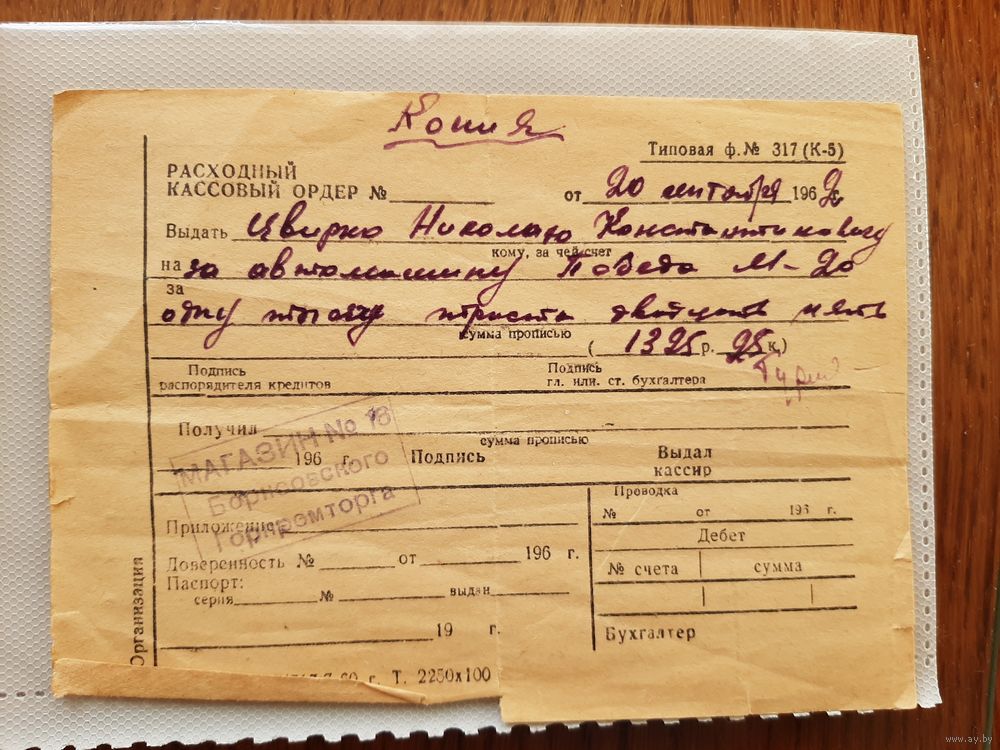 Копия
Типовая ф. № 317 (К-5)
РАСХОДНЫЙ
КАССОВЫЙ ОРДЕР №
от 20 сентября 1962 г.
Выдать Цвирко Николаю Константиновичу
кому, за чей счет
на за автомашину Победа М-20
за
одну тысячу триста двадцать пять
сумма прописью
( 1325 р. 25 к.)
Подпись
распорядителя кредитов
Подпись
гл. или. ст. бухгалтера
Получил
сумма прописью
196 г. Подпись
Выдал
кассир
МАГАЗИН № 18
Борисовского
Горпромторга
Проводка
№ от 196 г.
Приложение
Дебет
Доверенность № от 196 г.
№ счета сумма
Паспорт:
серия № выдан
19 г.
Бухгалтер
Организация
60 г. Т. 2250х100
www.ay.by